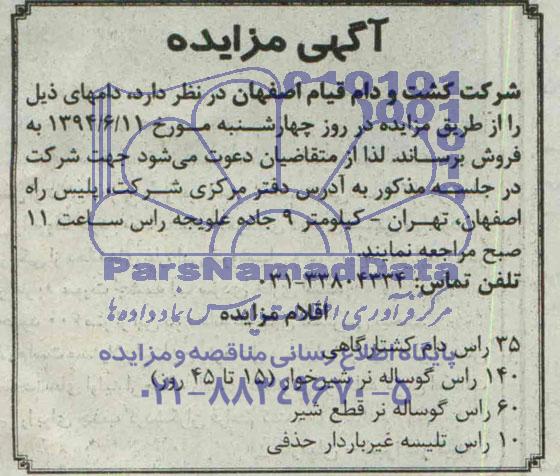 آگهی مزایده
شرکت کشت و دام قیام اصفهان در نظر دارد، دامهای ذیل
را از طریق مزایده در روز چهارشنبه مورخ ۱۳۹۴/۶/۱۱ به
فروش برساند. لذا از متقاضیان دعوت می‌شود جهت شرکت
در جلسه مذکور به آدرس دفتر مرکزی شرکت، پلیس راه
اصفهان، تهران - کیلومتر ۹ جاده علویجه راس ساعت ۱۱
صبح مراجعه نمایند.
ParsNamadData
تلفن تماس: ۳۳۸۰۴۳۳۴-۰۳۱
مرکز فرآوری اطلاعات پارس نماد داده‌ها
اقلام مزایده
۳۵ راس دام کشتارگاهی
پایگاه اطلاع رسانی مناقصه و مزایده
۱۴۰ راس گوساله نر شیرخوار (۱۵ تا ۴۵ روز)
۰۲۱-۸۸۳۴۹۶۷۰-۵
۶۰ راس گوساله نر قطع شیر
۱۰ راس تلیسه غیرباردار حذفی